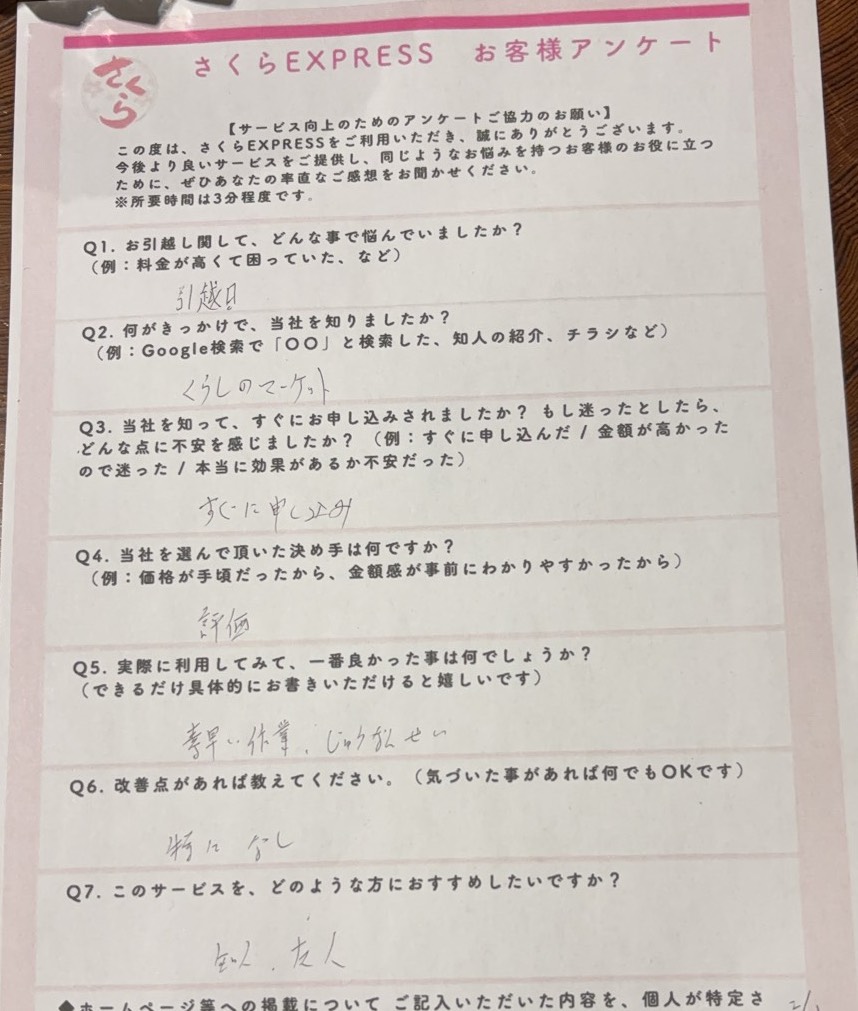 さくら
さくらEXPRESS お客様アンケート
【サービス向上のためのアンケートご協力のお願い】
この度は、さくらEXPRESSをご利用いただき、誠にありがとうございます。
今後より良いサービスをご提供し、同じようなお悩みを持つお客様のお役に立つ
ために、ぜひあなたの率直なご感想をお聞かせください。
※所要時間は3分程度です。
Q1. お引越し関して、どんな事で悩んでいましたか？
（例：料金が高くて困っていた、など）
引越日
Q2. 何がきっかけで、当社を知りましたか？
（例：Google検索で「〇〇」と検索した、知人の紹介、チラシなど）
くらしのマーケット
Q3. 当社を知って、すぐにお申し込みされましたか？ もし迷ったとしたら、
どんな点に不安を感じましたか？（例：すぐに申し込んだ / 金額が高かった
ので迷った / 本当に効果があるか不安だった）
すぐに申し込み
Q4. 当社を選んで頂いた決め手は何ですか？
（例：価格が手頃だったから、金額感が事前にわかりやすかったから）
評価
Q5. 実際に利用してみて、一番良かった事は何でしょうか？
（できるだけ具体的にお書きいただけると嬉しいです）
素早い作業、じゅうなんせい
Q6. 改善点があれば教えてください。（気づいた事があれば何でもOKです）
特になし
Q7. このサービスを、どのような方におすすめしたいですか？
知人、友人
◆ホームページ等への掲載について ご記入いただいた内容を、個人が特定さ